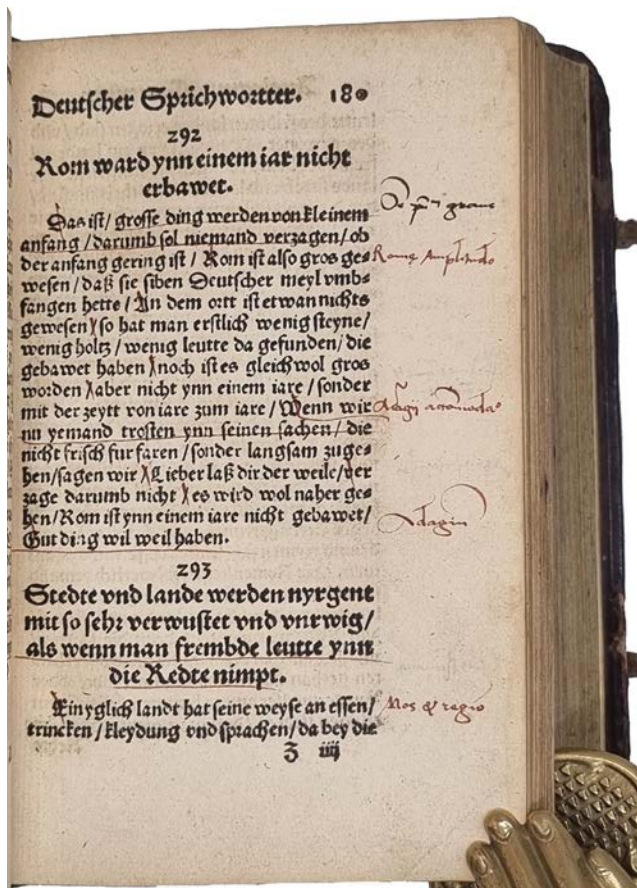 Deutscher Sprichwortter. 180
292
Rom ward ynn einem iar nicht
erbawet.
Das ist/ grosse ding werden von kleinem
anfang/darumb sol niemand verzagen/ob
der anfang gering ist/ Rom ist also gros ge⸗
wesen/daß sie siben Deutscher meyl vmb⸗
fangen hette/In dem ortt ist etwan nichts
gewesen/so hat man erstlich wenig steyne/
wenig holtz/wenig leutte da gefunden/die
gebawet haben/noch ist es gleichwol gros
worden/aber nicht ynn einem iare/sonder
mit der zeytt von iare zum iare/Wenn wir
nu yemand trosten ynn seinen sachen/die
nicht frisch fur faren/sonder langsam zuge⸗
hen/sagen wir/Lieber laß dir der weile/ver
zage darumb nicht/es wird wol naher ge⸗
hen/Rom ist ynn einem iare nicht gebawet/
Gut ding wil weil haben.
293
Stedte vnd lande werden nyrgent
mit so sehr verwustet vnd vnrwig/
als wenn man frembde leutte ynn
die Redte nimpt.
Ein yglich landt hat seine weyse an essen/
trincken/kleydung vnd sprachen/da bey die
Z iiij
Romę Amplitudo
Adagij
Adagiu
Mos & regio